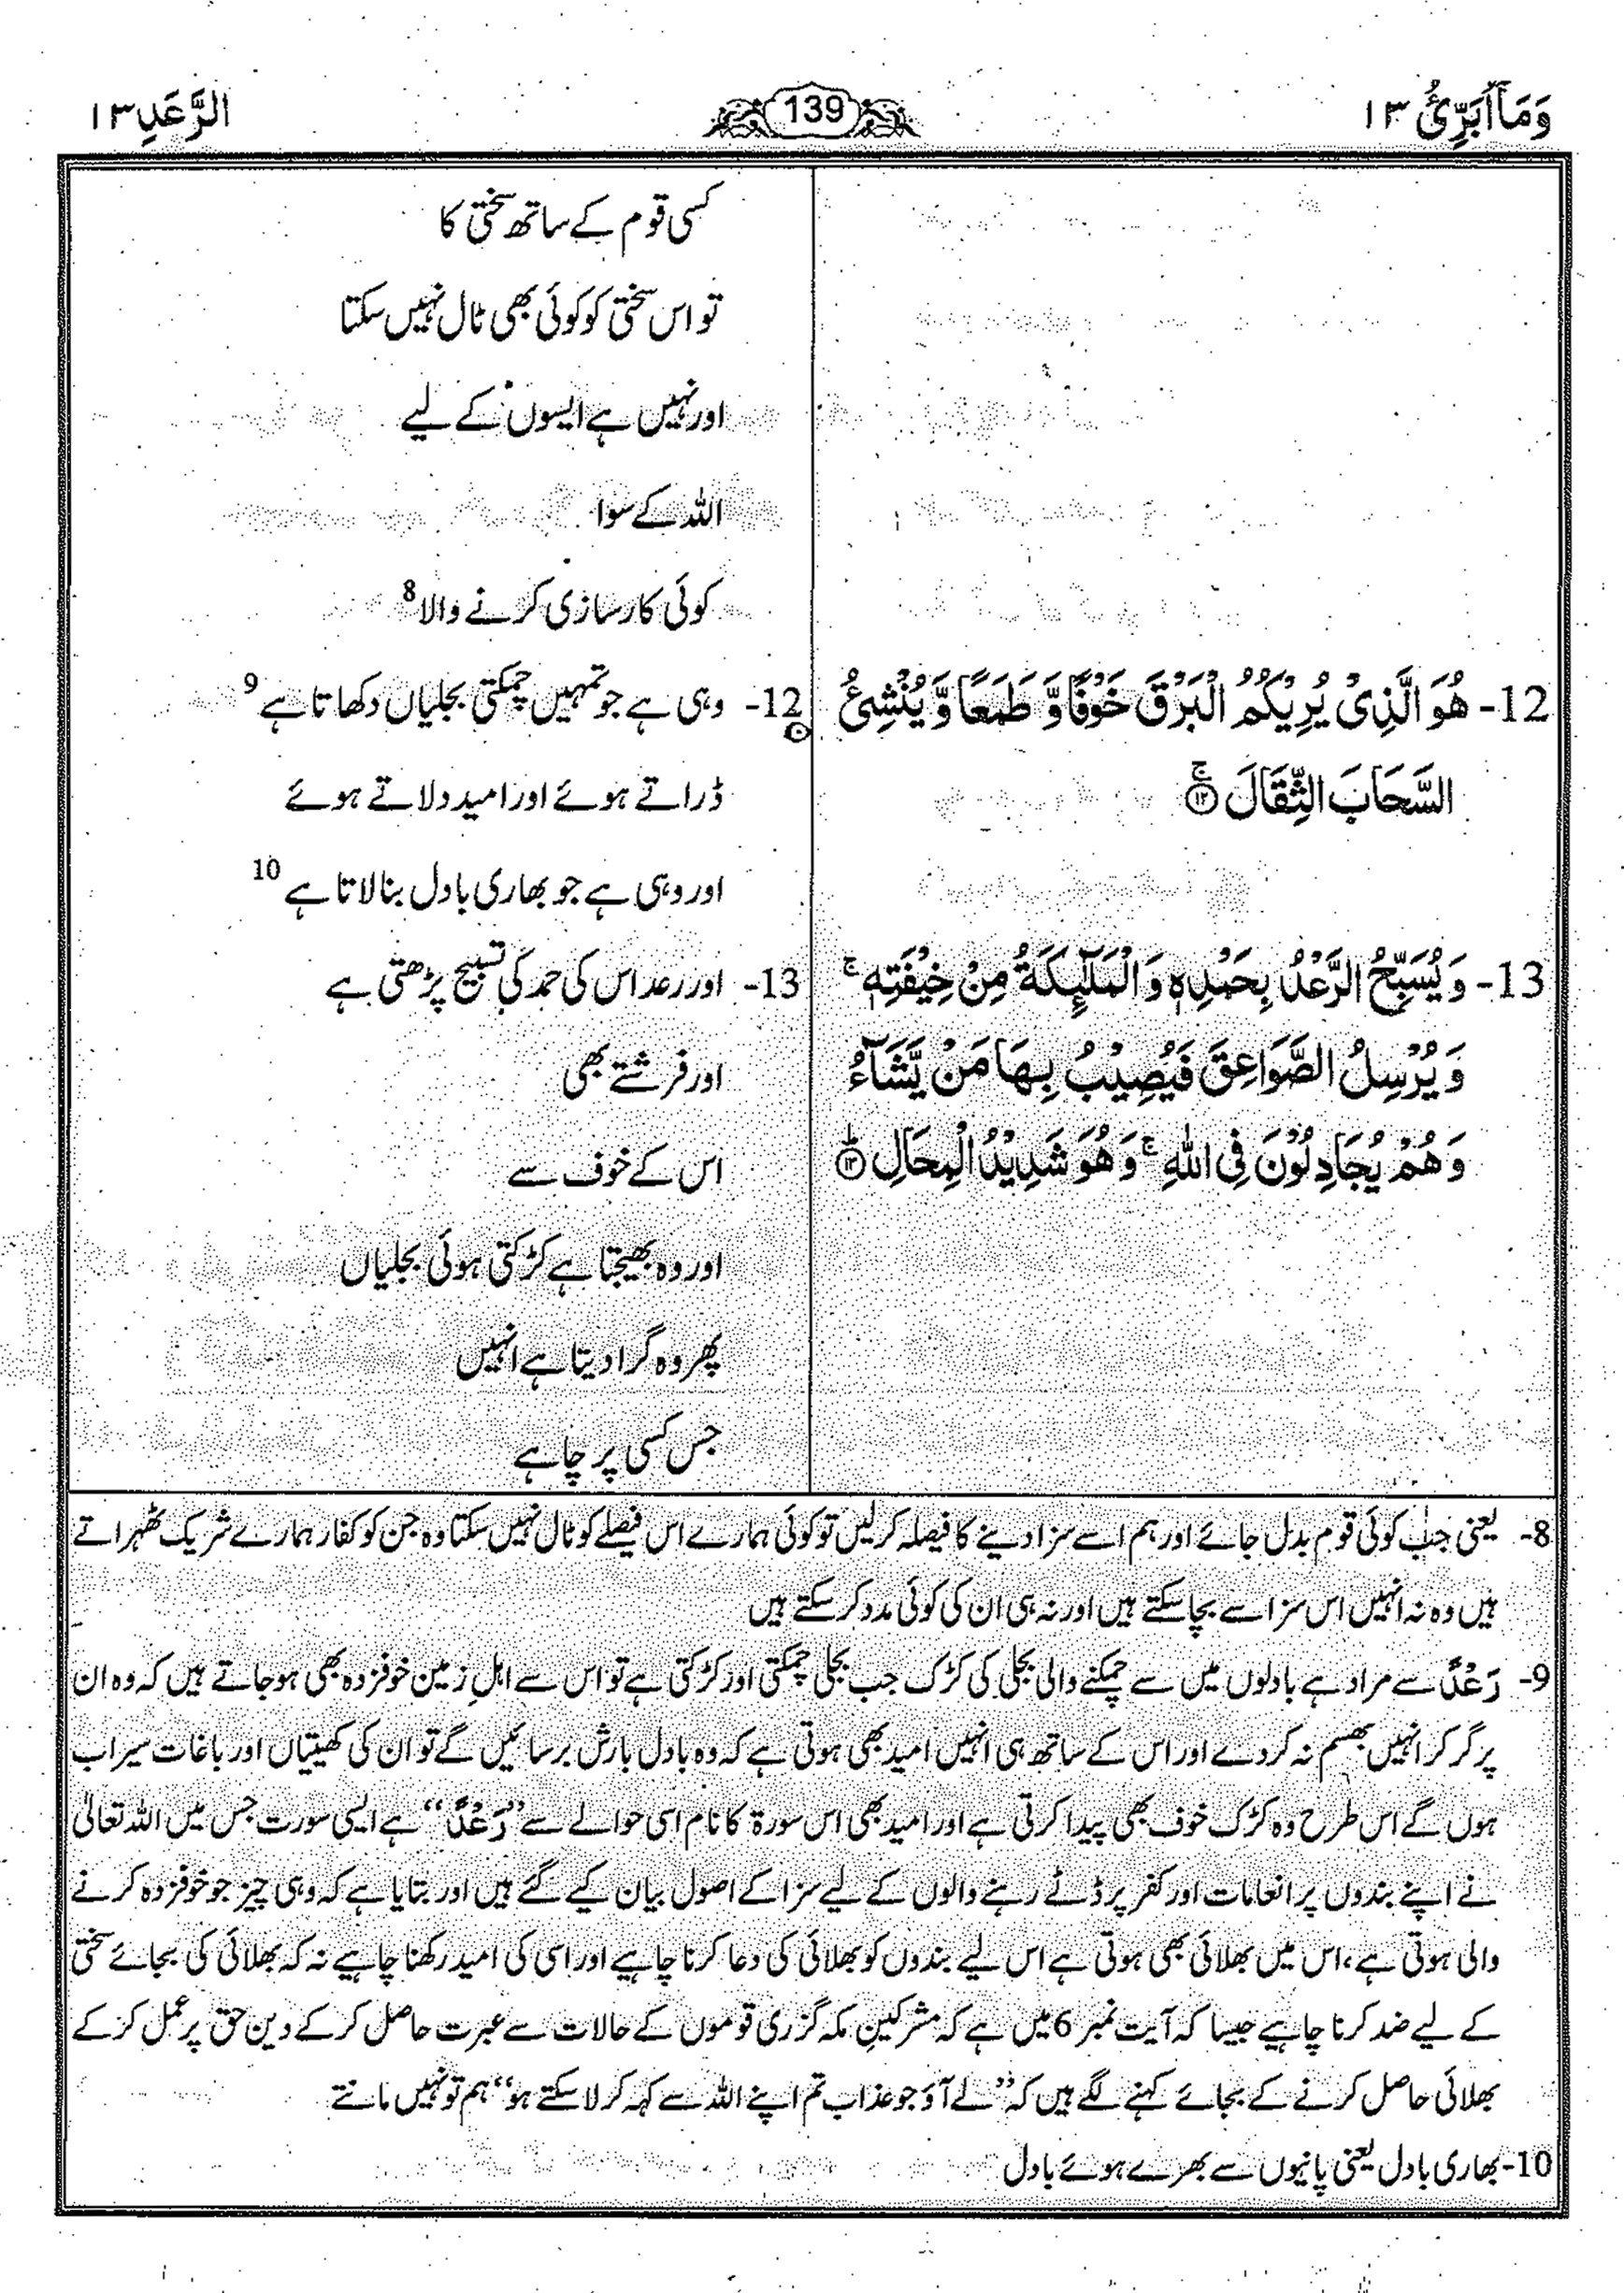 وَمَاۤ اُبَرِّئُ ۱۳
139
الرَّعَدِ ۱۳
کسی قوم کے ساتھ سختی کا
تو اس سختی کو کوئی بھی ٹال نہیں سکتا
اور نہیں ہے ایسوں کے لیے
اللہ کے سوا
کوئی کارسازی کرنے والا 8
12- هُوَ الَّذِیْ یُرِیْكُمُ الْبَرْقَ خَوْفًا وَّ طَمَعًا وَّ یُنْشِئُ
السَّحَابَ الثِّقَالَ ۚ﴿۱۲﴾
12- وہی ہے جو تمہیں چمکتی بجلیاں دکھاتا ہے 9
ڈراتے ہوئے اور امید دلاتے ہوئے
اور وہی ہے جو بھاری بادل بنا لاتا ہے 10
13- وَ یُسَبِّحُ الرَّعْدُ بِحَمْدِهٖ وَ الْمَلٰٓىِٕكَةُ مِنْ خِیْفَتِهٖ ۚ
وَ یُرْسِلُ الصَّوَاعِقَ فَیُصِیْبُ بِهَا مَنْ یَّشَآءُ
وَ هُمْ یُجَادِلُوْنَ فِی اللّٰهِ ۚ وَ هُوَ شَدِیْدُ الْمِحَالِ ؕ﴿۱۳﴾
13- اور رعد اس کی حمد کی تسبیح پڑھتی ہے
اور فرشتے بھی
اس کے خوف سے
اور وہ بھیجتا ہے کڑکتی ہوئی بجلیاں
پھر وہ گرا دیتا ہے انہیں
جس کسی پر چاہے
8- یعنی جب کوئی قوم بدل جائے اور ہم اسے سزا دینے کا فیصلہ کر لیں تو کوئی ہمارے اس فیصلے کو ٹال نہیں سکتا وہ جن کو کفار ہمارے شریک ٹھہراتے
ہیں وہ نہ انہیں اس سزا سے بچا سکتے ہیں اور نہ ہی ان کی کوئی مدد کر سکتے ہیں
9- رَعْدً سے مراد ہے بادلوں میں سے چمکنے والی بجلی کی کڑک جب بجلی چمکتی اور کڑکتی ہے تو اس سے اہلِ زمین خوفزدہ بھی ہو جاتے ہیں کہ وہ ان
پر گر کر انہیں بھسم نہ کر دے اور اس کے ساتھ ہی انہیں امید بھی ہوتی ہے کہ وہ بادل بارش برسائیں گے تو ان کی کھیتیاں اور باغات سیراب
ہوں گے اس طرح وہ کڑک خوف بھی پیدا کرتی ہے اور امید بھی اس سورۃ کا نام اسی حوالے سے ”رَعْدً“ ہے ایسی سورت جس میں اللہ تعالیٰ
نے اپنے بندوں پر انعامات اور کفر پر ڈٹے رہنے والوں کے لیے سزا کے اصول بیان کیے گئے ہیں اور بتایا ہے کہ وہی چیز جو خوفزدہ کرنے
والی ہوتی ہے، اس میں بھلائی بھی ہوتی ہے اس لیے بندوں کو بھلائی کی دعا کرنا چاہیے اور اسی کی امید رکھنا چاہیے نہ کہ بھلائی کی بجائے سختی
کے لیے ضد کرنا چاہیے جیسا کہ آیت نمبر 6 میں ہے کہ مشرکینِ مکہ گزری قوموں کے حالات سے عبرت حاصل کر کے دین حق پر عمل کر کے
بھلائی حاصل کرنے کے بجائے کہنے لگے ہیں کہ ”لے آؤ جو عذاب تم اپنے اللہ سے کہہ کر لا سکتے ہو“ ہم تو نہیں مانتے
10- بھاری بادل یعنی پانیوں سے بھرے ہوئے بادل